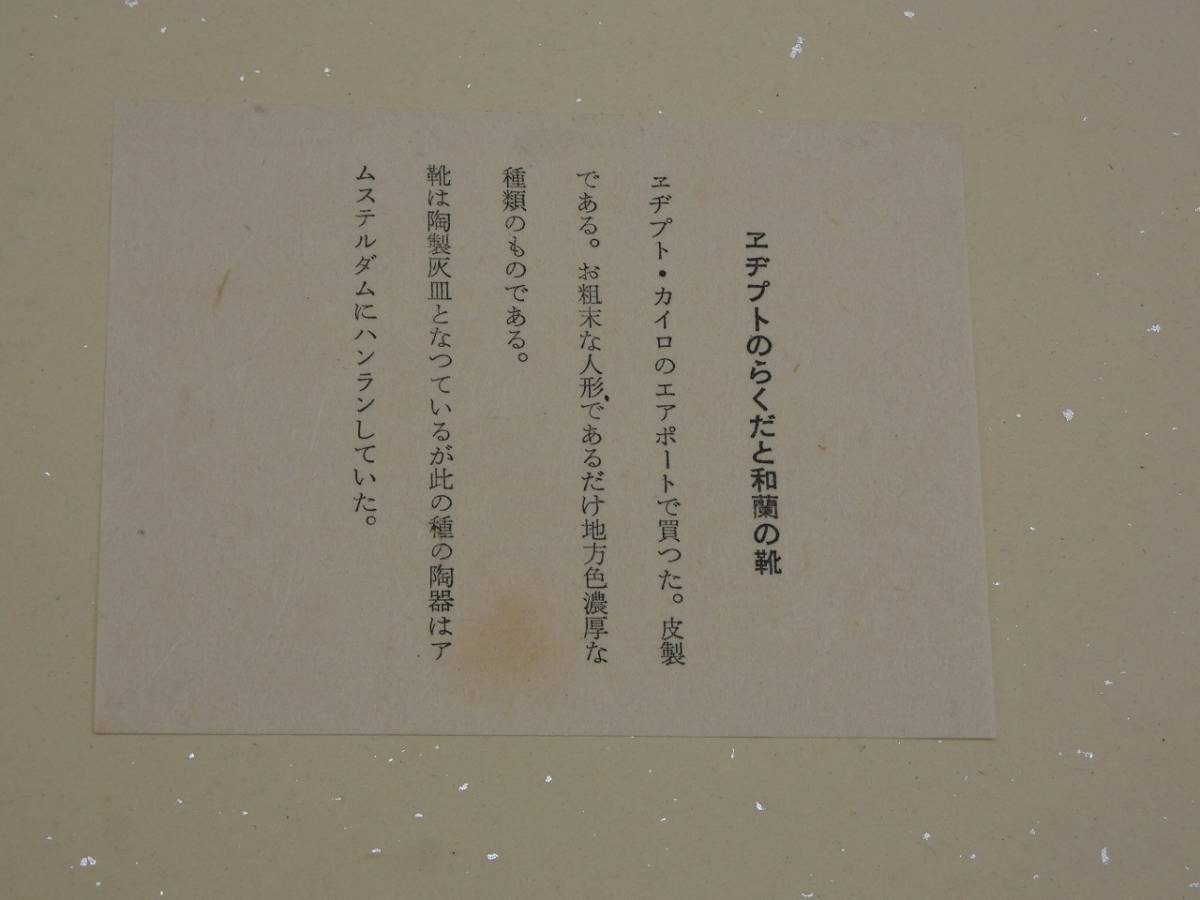 ヱヂプトのらくだと和蘭の靴
ヱヂプト・カイロのエアポートで買つた。皮製
である。お粗末な人形であるだけ地方色濃厚な
種類のものである。
靴は陶製灰皿となつているが此の種の陶器はア
ムステルダムにハンランしていた。